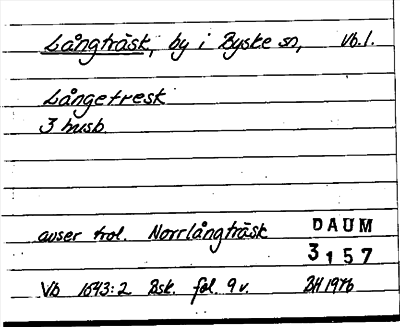 Långträsk, by i Byske sn, Vb.l.
Långetresk
3 husb.
avser trol. Norrlångträsk
DAUM
3157
Vb 1643:2 Bsk. fol. 9 v. BH 1976